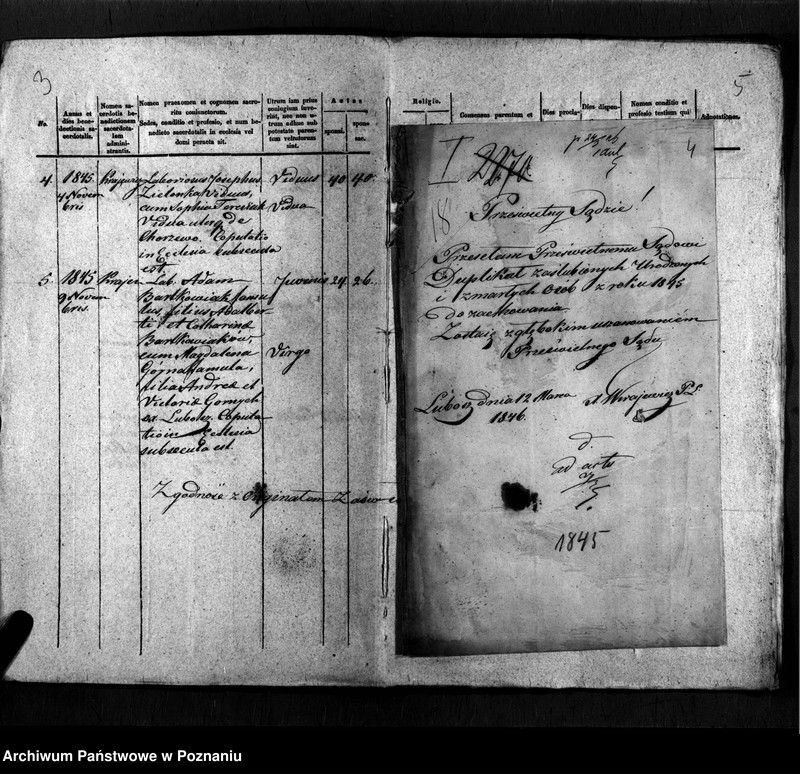 3
No.
Annus et
dies bene-
dictionis sa-
cerdotalis.
Nomen sa-
cerdotis be-
nedictionem
sacerdota-
lem
admini-
strantis.
Nomen praenomen et cognomen sacro-
ritu conjunctorum.
Sedes, conditio et profesio, et num be-
nedicto sacerdotalis in ecclesia vel
domi peracta sit.
Utrum iam prius
conjugium inve-
rint, nec non u-
trum adhuc sub
potestate paren-
tum velrutorum
sint.
Aetas
sponsi.
spon-
sae.
4.
1845.
4 Novem
bris
Laboriosus Josephus
Zielonka Viduus,
cum Sophia
Vidua utrq de
Chorzewo. Copulatio
in Ecclesia subsecuta
est.
Viduus
Vidua
40
40.
5.
1845
9 Novem
bris.
Lab. Adam
Bartkowiak famu
lus, filius Adalber
ti et Catharinæ
Bartkowiakow,
cum Magdalena
Górna famula,
filia Andreæ et
Victoriæ Gornych
ex Lubosz. Copula
tio in Ecclesia
subsecuta est.
Juvenis
Virgo
24
26.
Zgodność z Orginałem
5
Religio.
Consensus parentum et
Dies procla-
Dies dispen-
Nomen conditio et
profesio testium qui
Adnotationes.
I
4
18
Prześwietny Sądzie!
Przesełam Prześwietnemu Sądowi
Duplikat zaślubionych Urodzonych
i zmarłych Osób z roku 1845
do zachowania
Zostaję z głębokim uszanowaniem
Prześwietnego Sądu
Lubosz dnia 12 Marca
1846.
d.
ad acta
1845
Archiwum Państwowe w Poznaniu